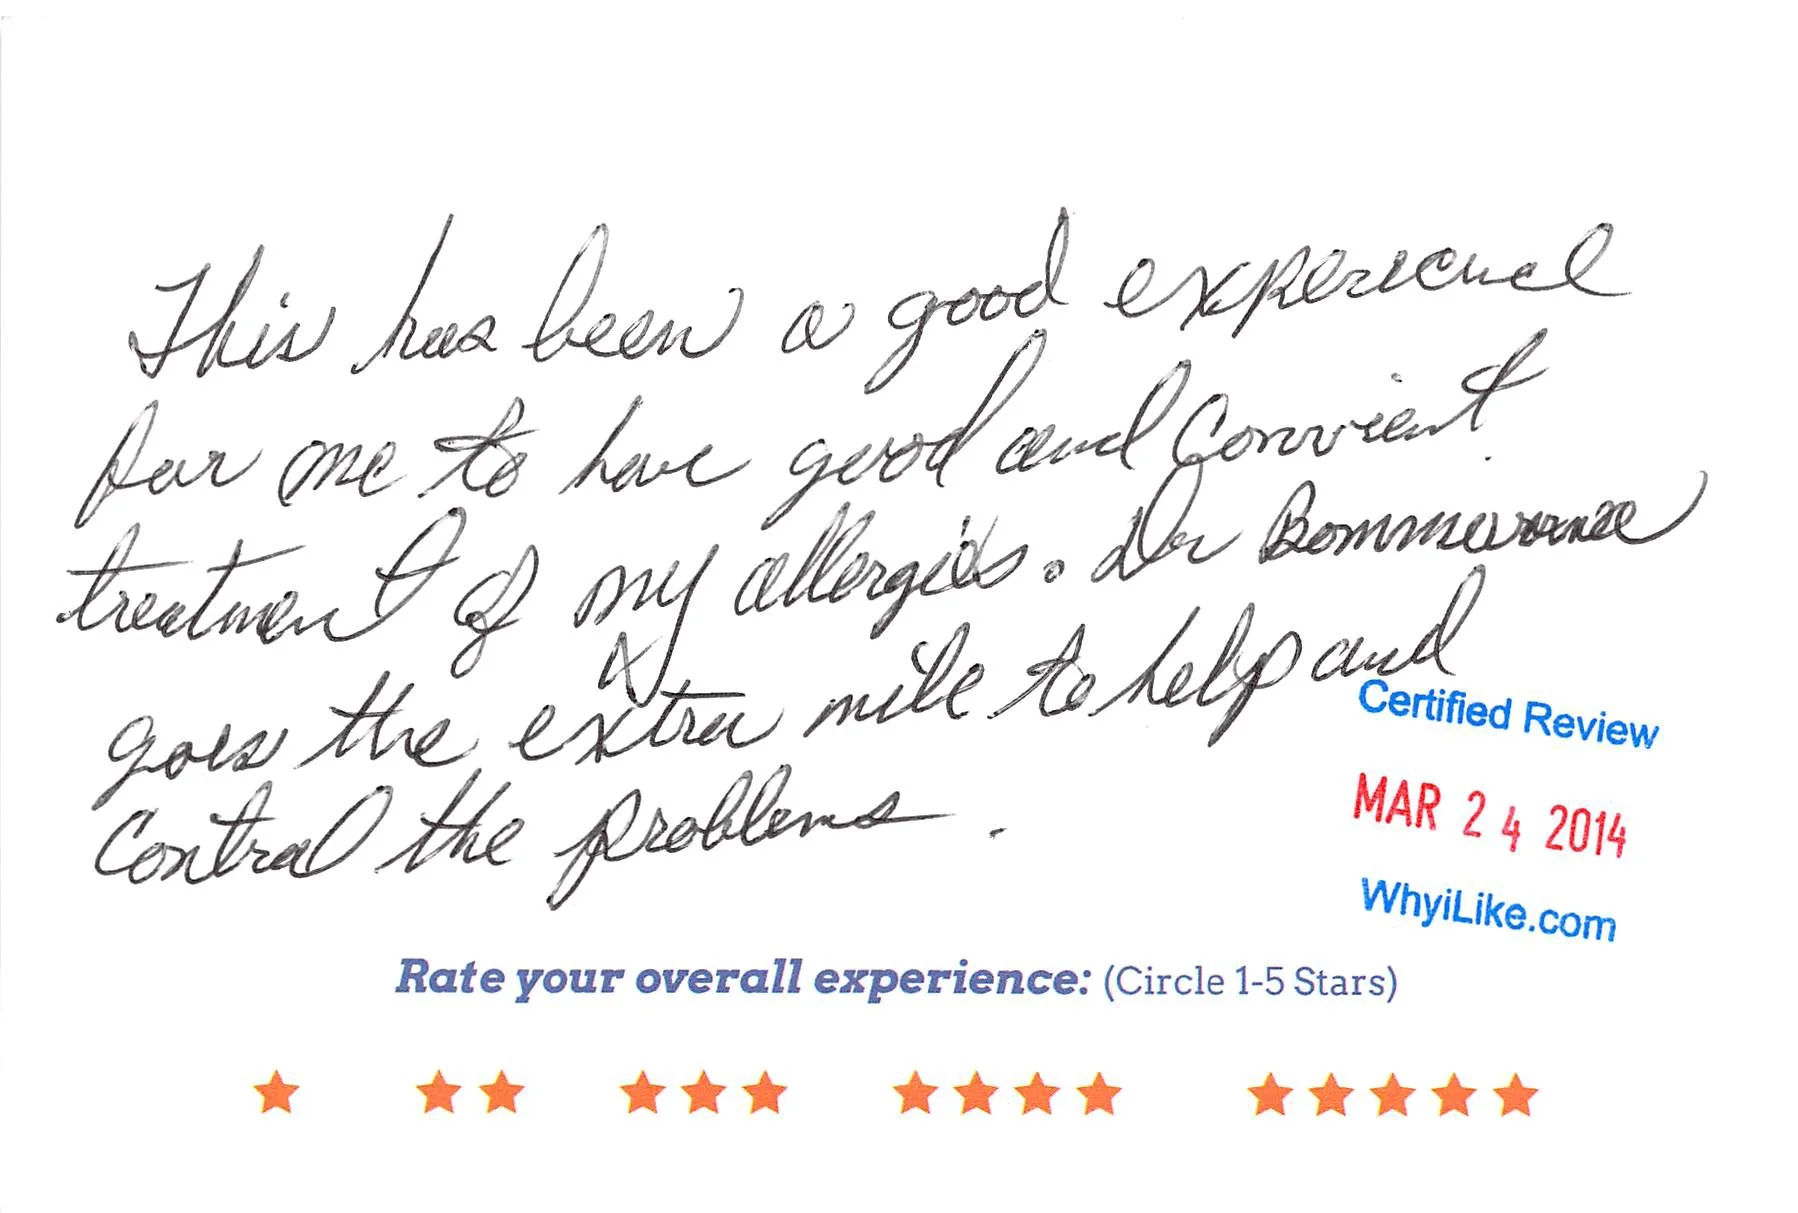 This has been a good experience
for me to have good and convient
treatment of my allergies. Dr
goes the extra mile to help and
control the problems.
Certified Review
MAR 24 2014
WhyiLike.com
Rate your overall experience: (Circle 1-5 Stars)